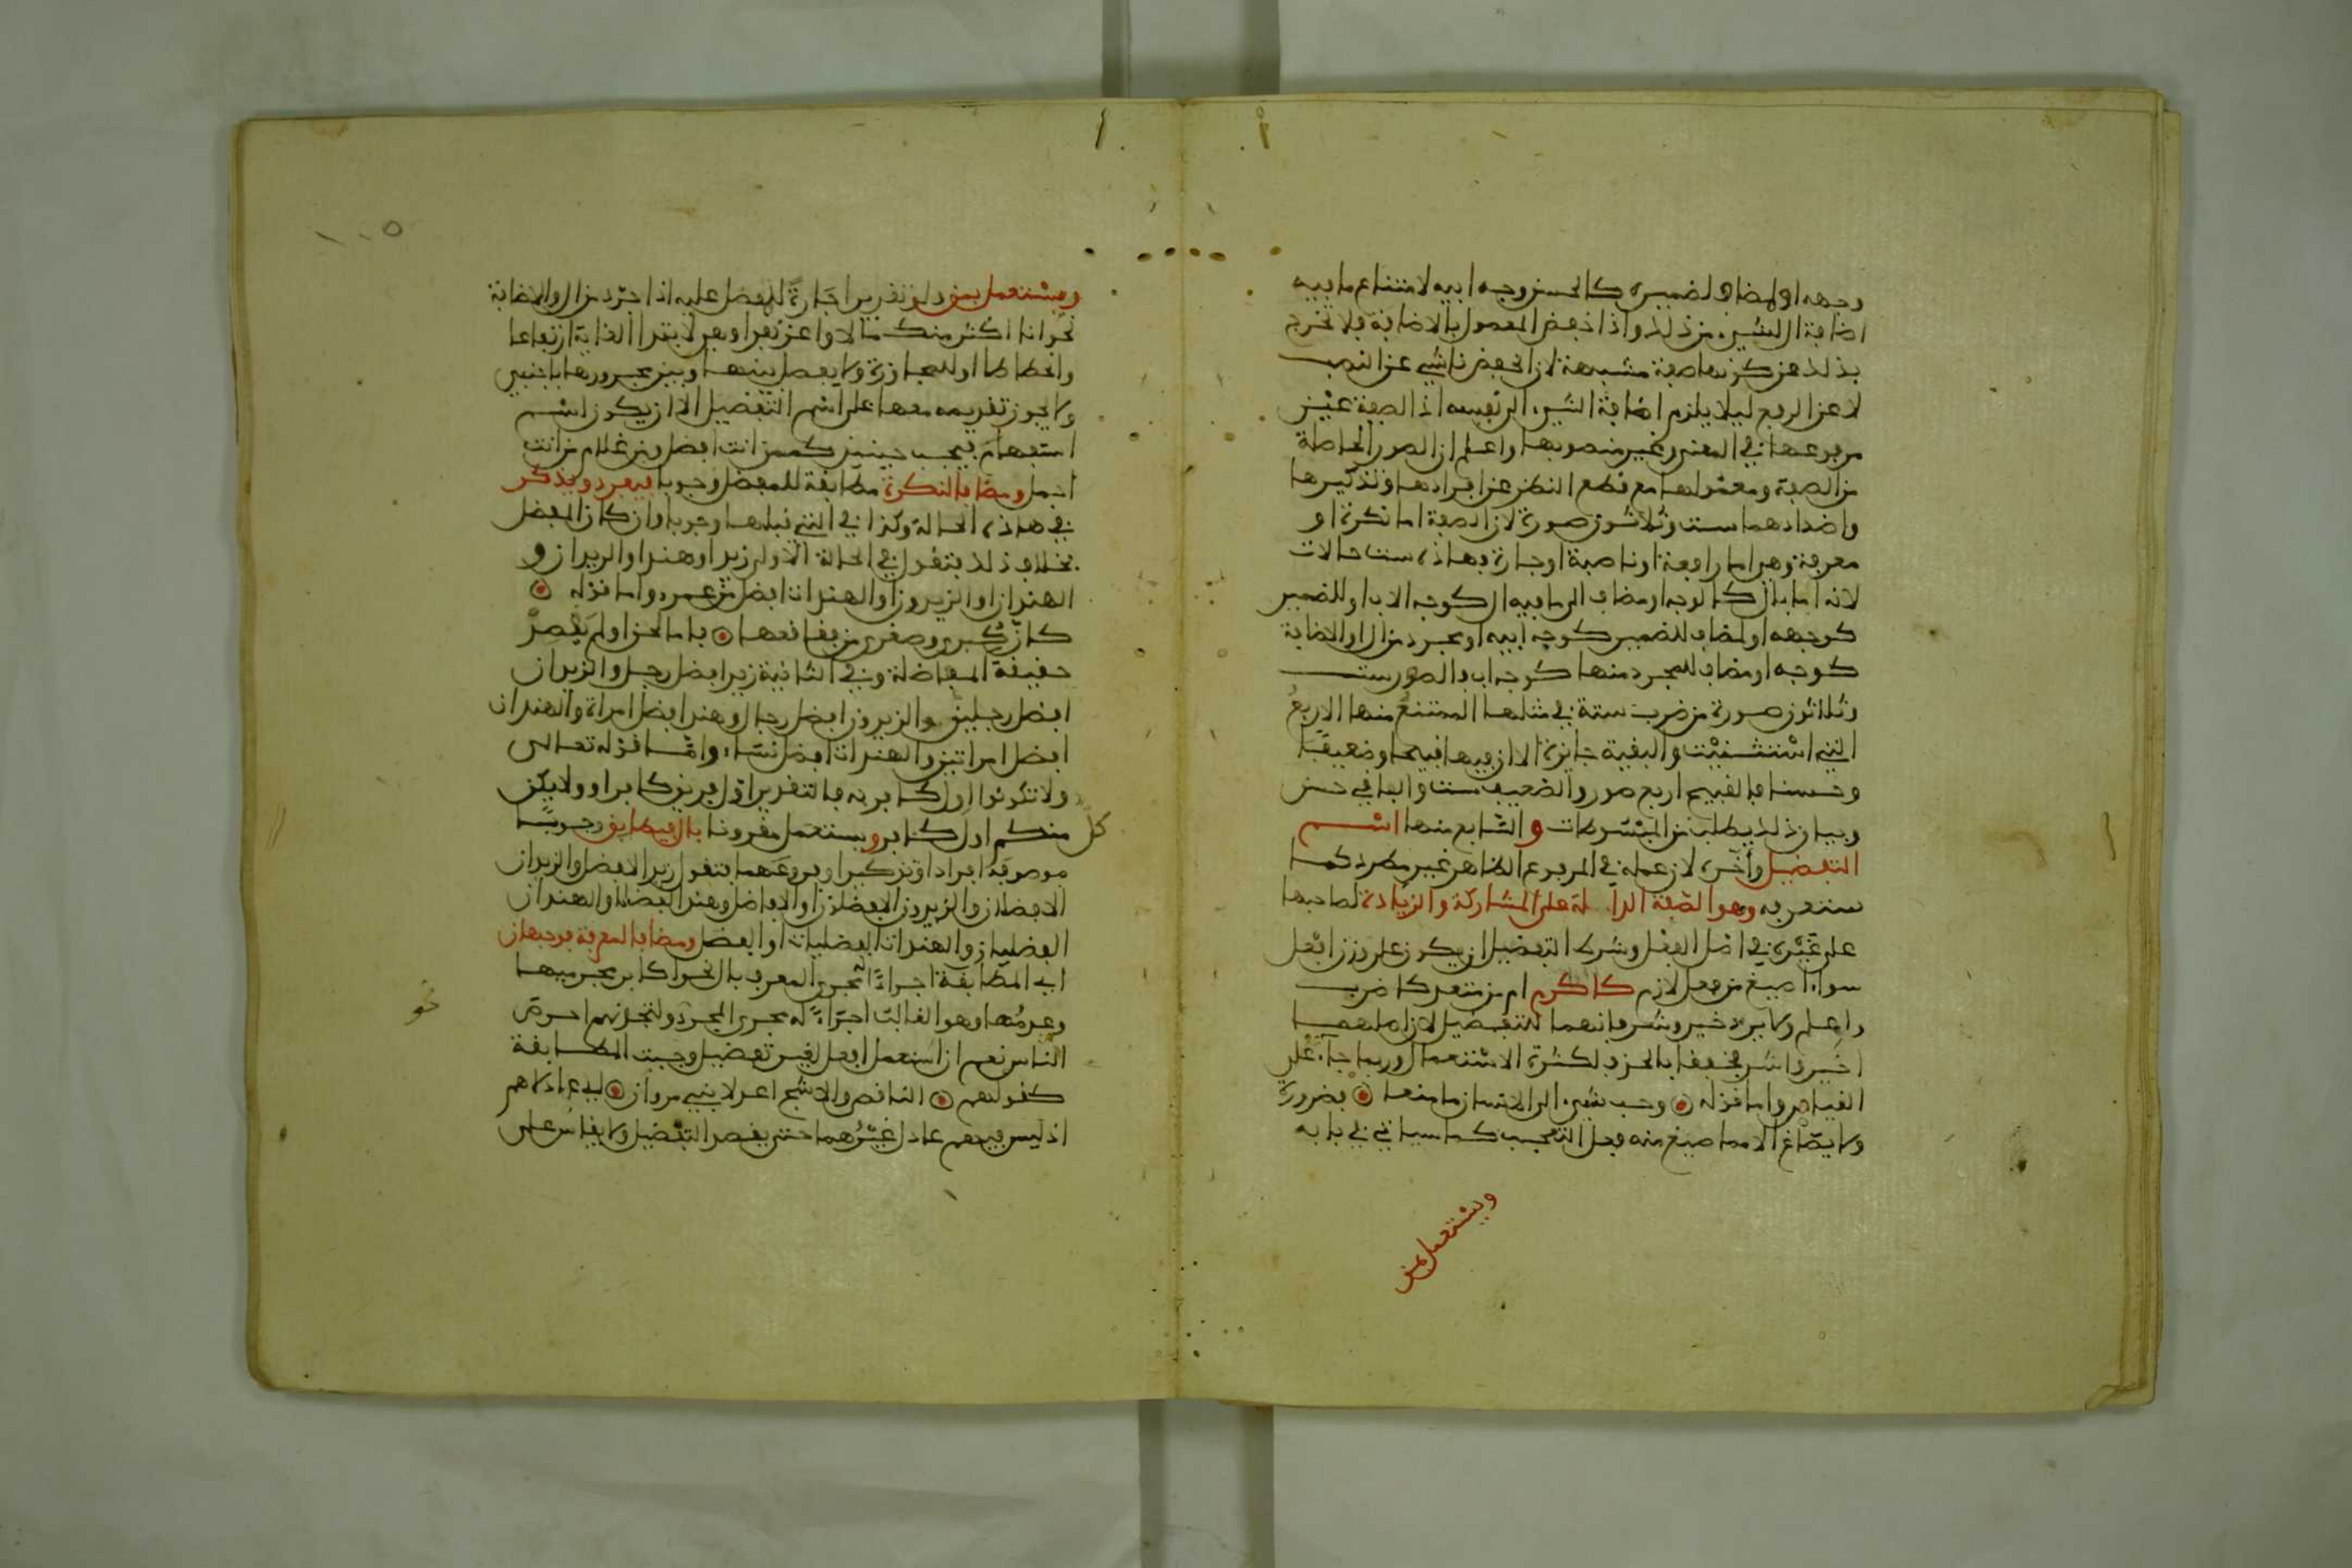 وجهه او لمضاف لضميره كالحسن وجه ابيه لامتناع ما فيه
اضافة ال لشيء من ذلك واذا خفض المعمول بالاضافة فلا تخرج
بذلك عن كونها صفة مشبهة لان الخفض ناشئ عن النصب
لا عن الرفع ليلا يلزم اضافة الشيء الى نفسه اذ الصفة عين
مرفوعها في المعنى وغير منصوبها واعلم ان الصور الحاصلة
من الصفة ومعمولها مع قطع النظر عن افرادها وتذكيرها
واضدادهما ست وثلاثون صورة لان الصفة اما نكرة او
معرفة وهي اما رافعة او ناصبة او جارة فهاذه ست حالات
لانه اما بال كالوجه او مضاف الى ما فيه ال كوجه الاب او للضمير
كوجهه او لمضاف للضمير كوجه ابيه او مجرد من ال والاضافة
كوجه او مضاف للمجرد منها كوجه اب فالصور ست
وثلاثون صورة من ضرب ستة في مثلها الممتنع منها الاربع
التي استثنيت والبقية جايزة الا ان فيها قبيحا وضعيفا
وحسنا فالقبيح اربع صور والضعيف ست والباقي حسن
وبيان ذلك يطلب من المبسوطات و السابع منها اسم
التفضيل واخره لان عمله في المرفوع الظاهر غير مطرد كما
ستعرفه وهو الصفة الدالة على المشاركة والزيادة لصاحبها
على غيره في اصل الفعل وشرط التفضيل ان يكون على وزن افعل
سواء اصيغ من فعل لازم كاكرم ام من متعد كاضرب
واعلم ولا يرد خير وشر فانهما للتفضيل لان اصلهما
اخير واشر فخففا بالحذف لكثرة الاستعمال وربما جاء على
القياس واما قوله وحب شيء الى الانسان ما منعا فضرورة
ولا يصاغ الا مما صيغ منه فعل التعجب كما سياتي في بابه
ويستعمل بمن
ويستعمل بمن ولو تقديرا جارة للمفضل عليه اذا جرد من ال والاضافة
نحو انا اكثر منك مالا واعز نفرا وهي لابتداء الغاية ارتفاعا
وانحطاطا او للمجاوزة ولا يفصل بينها وبين مجرورها باجنبي
ولا يجوز تقديمه معها على اسم التفضيل الا ان يكون اسم
استفهام فيجب حينئذ كممن انت افضل ومن غلام من انت
اجمل ومضافا لنكرة مطابقة للمفضل وجوبا فيفرد ويذكر
في هاذه الحالة وكذا في التي قبلها وجوبا وان كان المفضل
بخلاف ذلك فتقول في الحالة الاولى زيد او هند او الزيدان و
الهندان او الزيدون او الهندات افضل من عمرو واما قوله
كان كبرى وصغرى من فقاقعها فاما لحن او لم يقصد
حقيقة المفاضلة وفي الثانية زيد افضل رجل والزيدان
افضل رجلين والزيدون افضل رجال وهند افضل امراة والهندان
افضل امراتين والهندات افضل نساء واما قوله تعالى
ولا تكونوا اول كافر به فالتقدير اول فريق كافر او ولا يكن
كل
منكم اول كافر ويستعمل مقرونا بال فيطابق وجوبا
موصوفه افرادا وتذكيرا وفروعهما فتقول زيد الافضل والزيدان
الافضلان والزيدون الافضلون او الافاضل وهند الفضلى والهندان
الفضليان والهندات الفضليات او الفضل ومضافا لمعرفة فوجهان
اي المطابقة اجراء له مجرى المعرف بال نحو اكابر مجرميها
وعدمها وهو الغالب اجراء له مجرى المجرد ولتجدنهم احرص
نحو
الناس نعم ان استعمل افعل لغير تفضيل وجبت المطابقة
كقولهم الناقص والاشج اعدلا بني مروان اي عادلاهم
اذ ليس فيهم عادل غيرهما حتى يقصد التفضيل ولا يقاس على